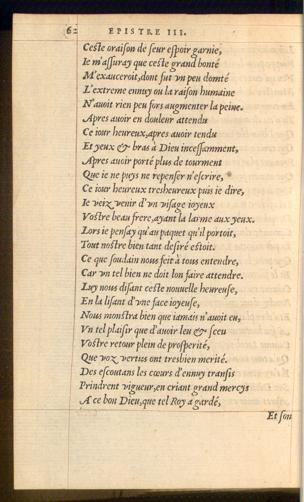 62 EPISTRE III.
Ceste oraison de seur espoir garnie,
Ie m'assuray que ceste grand bonté
M'exauceroit, dont fut vn peu domté
L'extreme ennuy ou la raison humaine
N'auoit rien peu fors augmenter la peine.
Apres auoir en douleur attendu
Ce iour heureux, apres auoir tendu
Et yeux & bras à Dieu incessamment,
Apres auoir porté plus de tourment
Que ie ne puys ne repenser n'escrire,
Ce iour heureux tresheureux puis ie dire,
Ie veiz venir d'vn visage ioyeux
Vostre beau frere, ayant la larme aux yeux.
Lors ie pensay qu'au paquet qu'il portoit,
Tout nostre bien tant desiré estoit.
Ce que soudain nous feit à tous entendre,
Car vn tel bien ne doit lon faire attendre.
Luy nous disant ceste nouuelle heureuse,
En la lisant d'vne face ioyeuse,
Nous monstra bien que iamais n'auoit eu,
Vn tel plaisir que d'auoir leu & sceu
Vostre retour plein de prosperité,
Que voz vertus ont tresbien merité.
Des escoutans les cœurs d'ennuy transis
Prindrent vigueur, en criant grand mercys
A ce bon Dieu, que tel Roy a gardé,
Et son